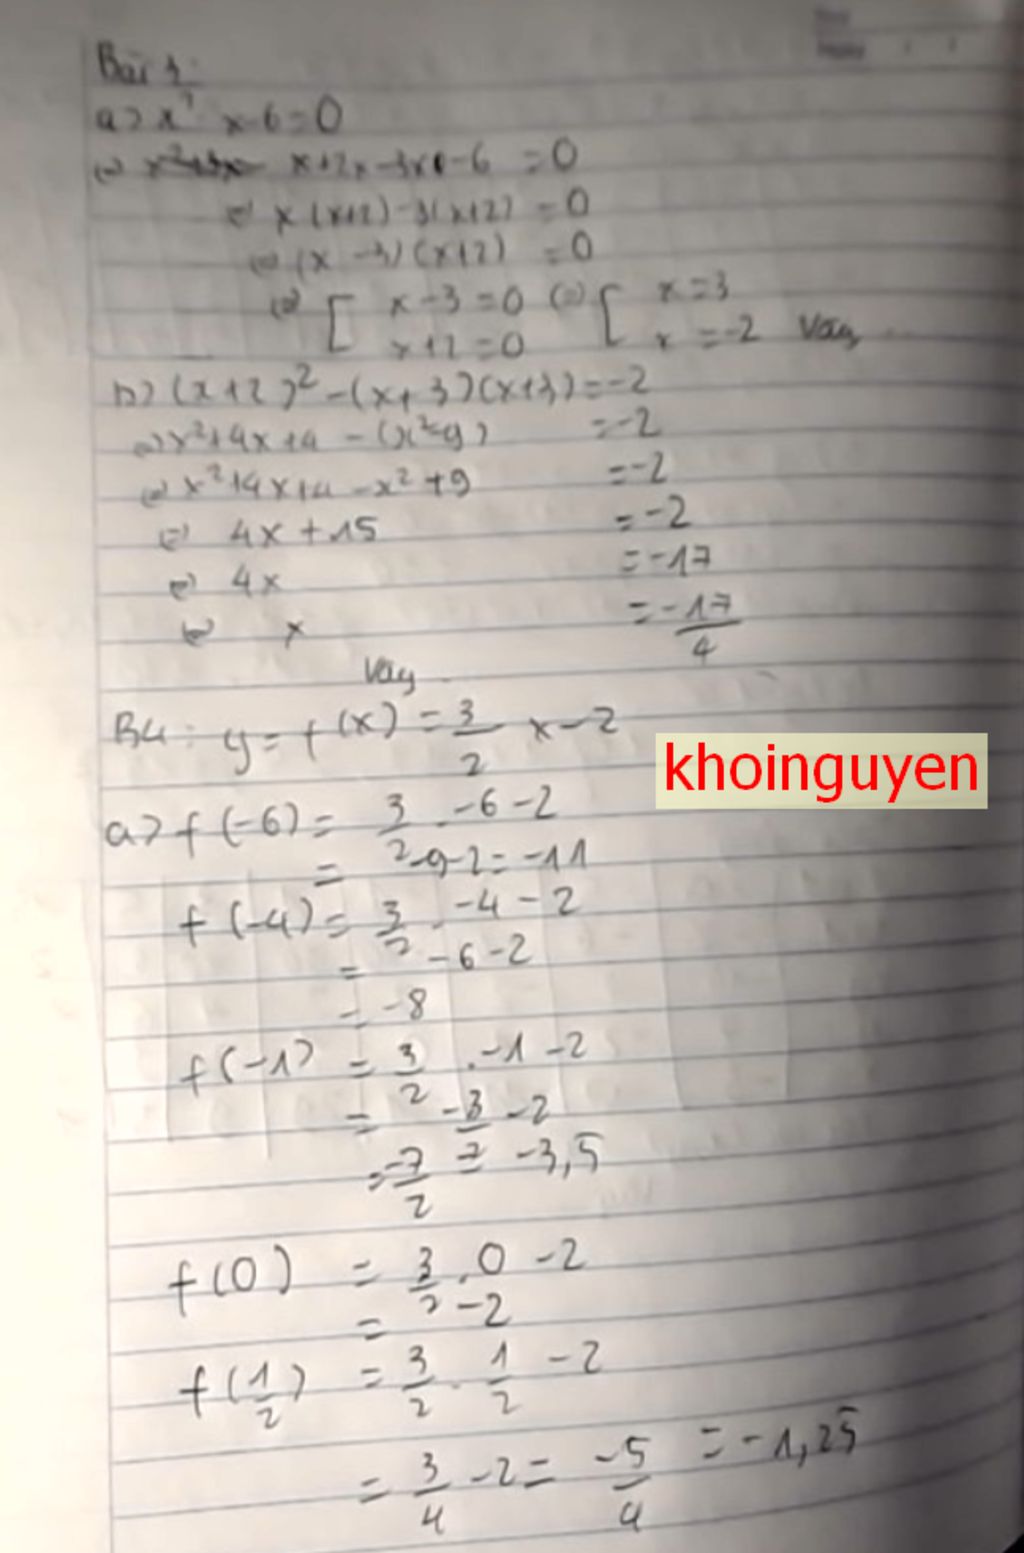 Bài 3:
a> x² x-6=0
<=> x+2x-3x-6 =0
<=> x(x+2)-3(x+2) =0
<=> (x-3)(x+2) =0
<=> [ x-3=0 <=> [ x=3
x+2=0 x=-2 Vậy
b> (x+2)²-(x+3)(x+3)=-2
<=> x²+4x+4-(x²-9) =-2
<=> x²+4x+4-x²+9 =-2
<=> 4x+15 =-2
<=> 4x =-17
<=> x =-17/4
Vậy
B4: y=f(x)=3/2 x-2
a> f(-6)= 3/2 . -6-2
= -9-2=-11
f(-4)= 3/2 . -4-2
= -6-2
= -8
f(-1) = 3/2 . -1-2
= -3/2 -2
= -7/2 = -3,5
f(0) = 3/2 . 0 -2
= -2
f(1/2) = 3/2 . 1/2 -2
= 3/4 -2 = -5/4 = -1,25
khoinguyen